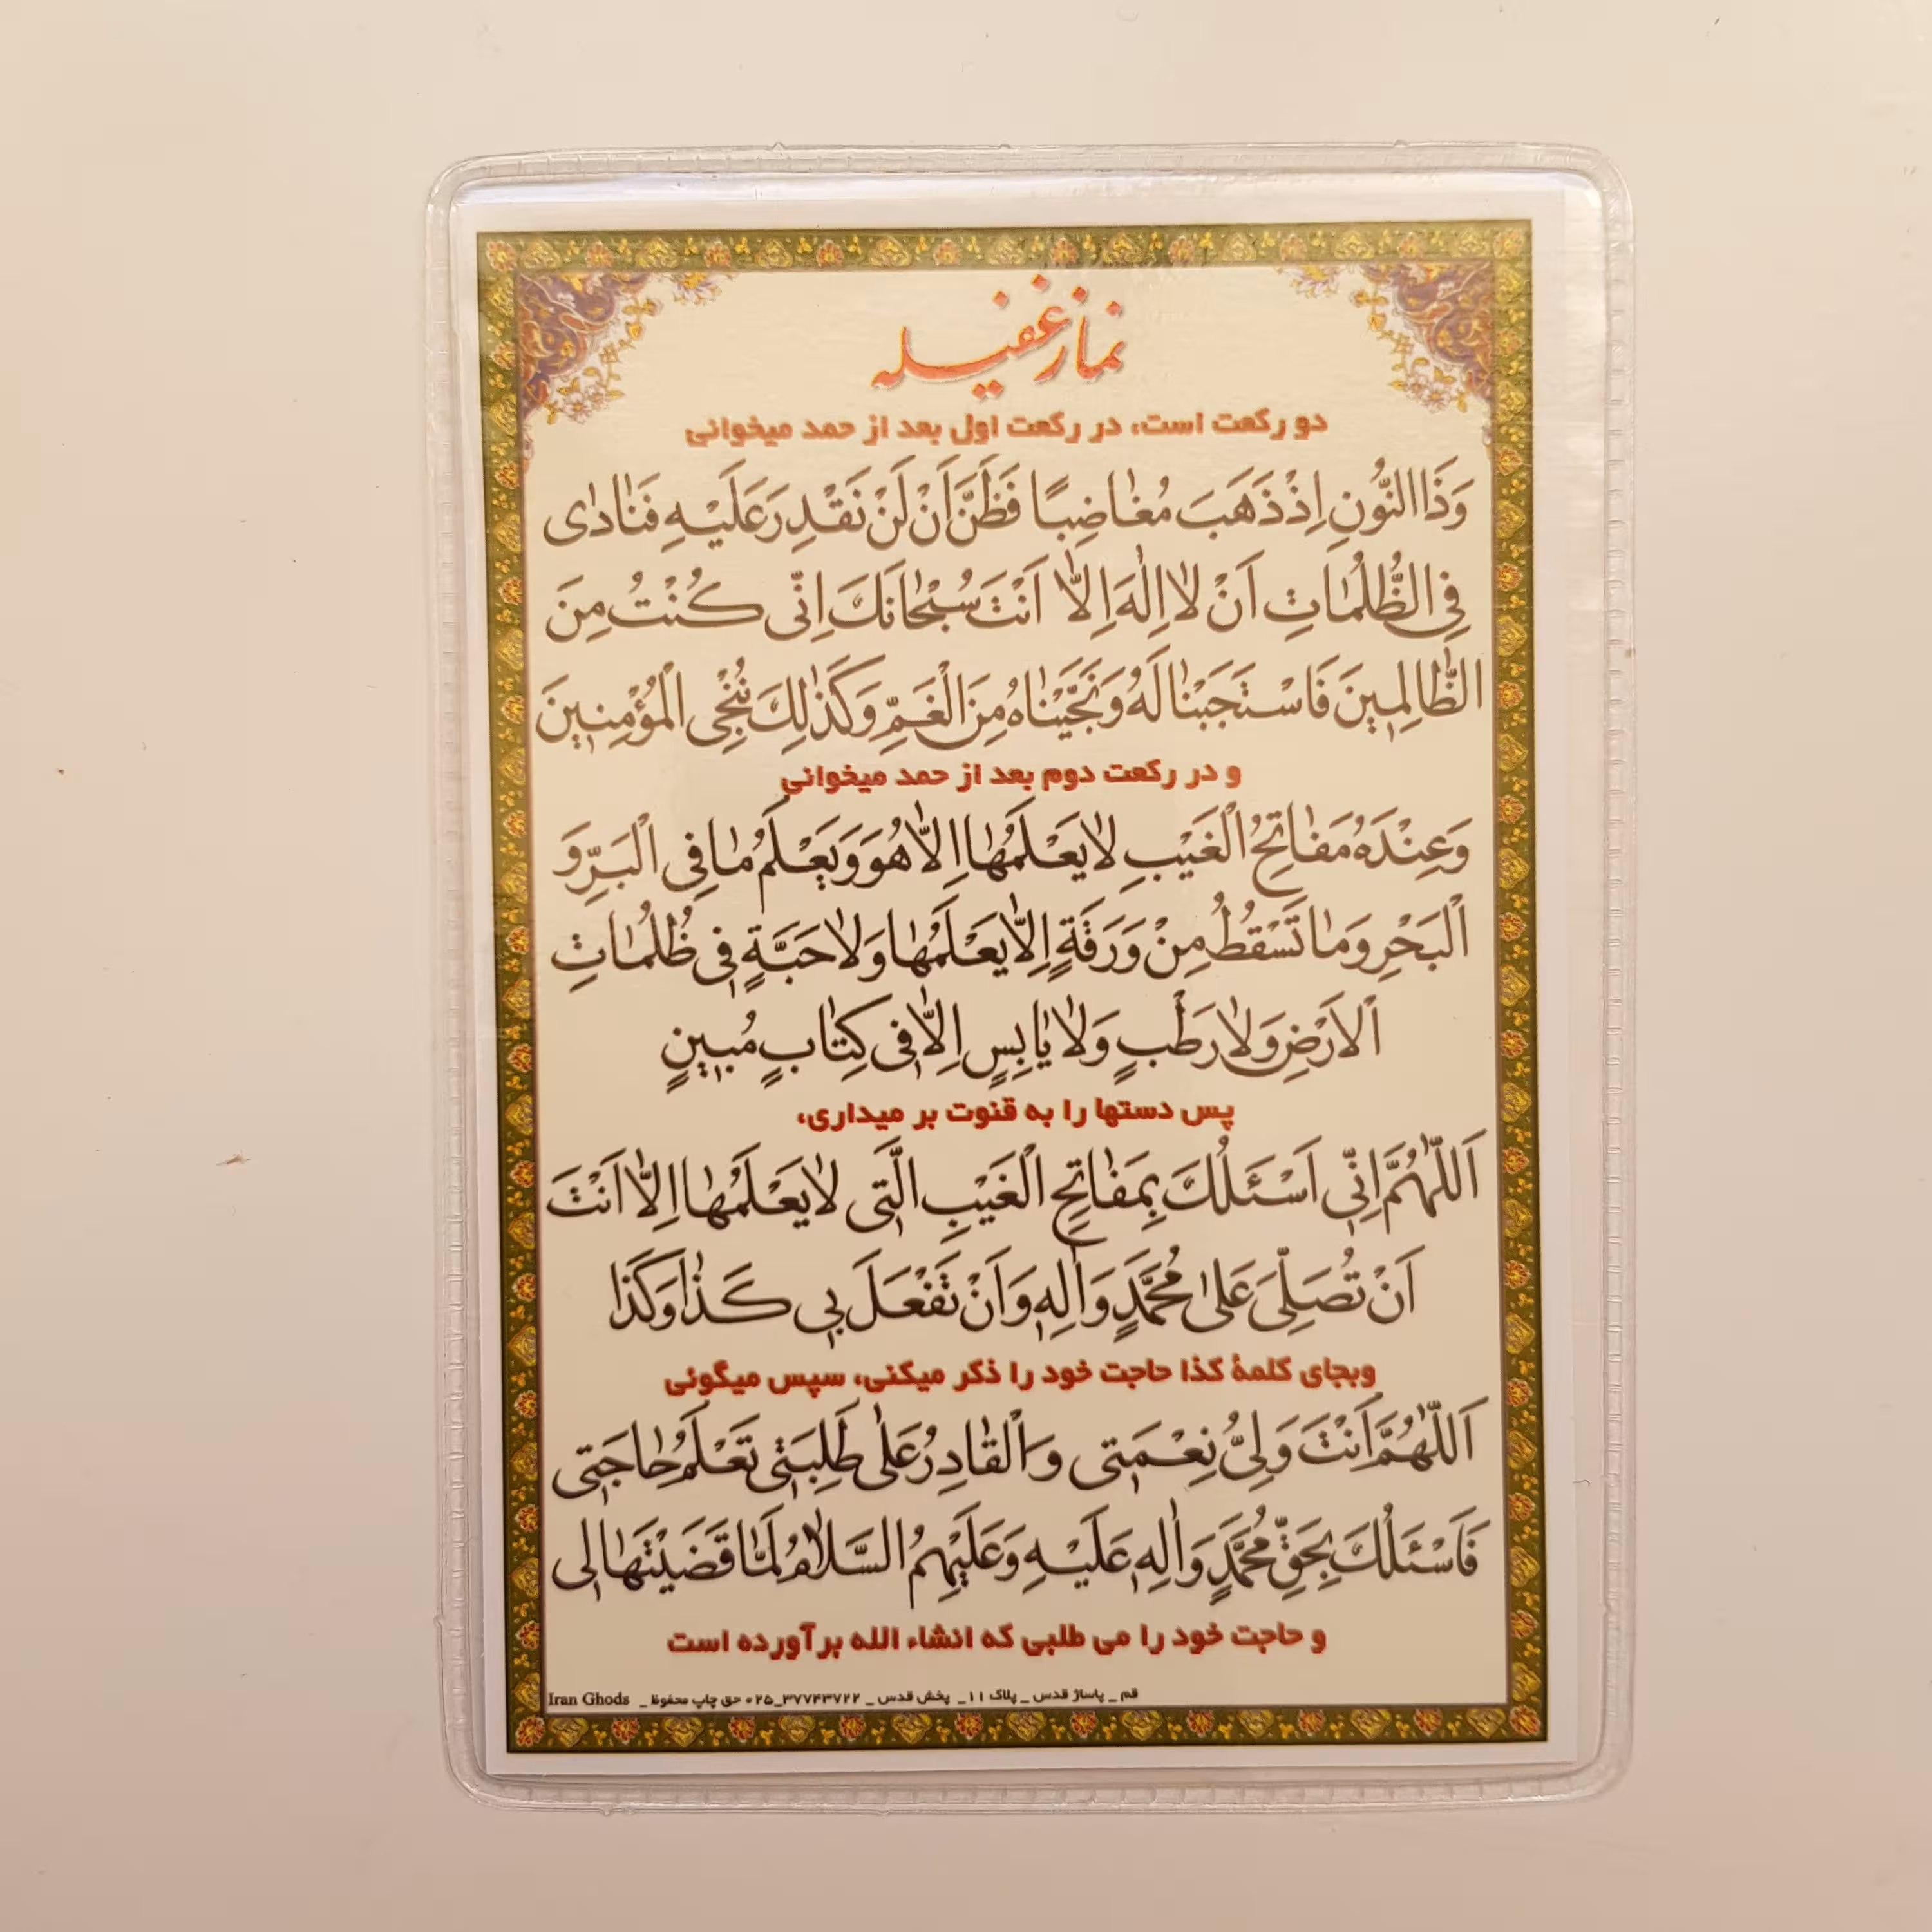 نماز غفیله
دو رکعت است، در رکعت اول بعد از حمد میخوانی
وَذَا النُّونِ اِذْ ذَهَبَ مُغٰاضِبًا فَظَنَّ اَنْ لَنْ نَقْدِرَ عَلَيْهِ فَنٰادٰى
فِى الظُّلُمٰاتِ اَنْ لٰا اِلٰهَ اِلّٰا اَنْتَ سُبْحٰانَكَ اِنّى كُنْتُ مِنَ
الظّٰالِمٖينَ فَاسْتَجَبْنٰا لَهُ وَنَجَّيْنٰاهُ مِنَ الْغَمِّ وَكَذٰلِكَ نُنْجِى الْمُؤْمِنٖينَ
و در رکعت دوم بعد از حمد میخوانی
وَعِنْدَهُ مَفٰاتِحُ الْغَيْبِ لٰا يَعْلَمُهٰا اِلّٰا هُوَ وَيَعْلَمُ مٰا فِى الْبَرِّ وَ
الْبَحْرِ وَمٰا تَسْقُطُ مِنْ وَرَقَةٍ اِلّٰا يَعْلَمُهٰا وَلٰا حَبَّةٍ فٖى ظُلُمٰاتِ
الْاَرْضِ وَلٰا رَطْبٍ وَلٰا يٰابِسٍ اِلّٰا فٖى كِتٰابٍ مُبٖينٍ
پس دستها را به قنوت بر میداری،
اَللّٰهُمَّ اِنّٖى اَسْئَلُكَ بِمَفٰاتِحِ الْغَيْبِ الَّتٖى لٰا يَعْلَمُهٰا اِلّٰا اَنْتَ
اَنْ تُصَلِّىَ عَلىٰ مُحَمَّدٍ وَاٰلِهٖ وَاَنْ تَفْعَلَ بٖى كَذٰا وَكَذٰا
وبجای کلمهٔ کذا حاجت خود را ذکر میکنی، سپس میگوئی
اَللّٰهُمَّ اَنْتَ وَلِىُّ نِعْمَتٖى وَالْقٰادِرُ عَلٰى طَلِبَتٖى تَعْلَمُ حٰاجَتٖى
فَاَسْئَلُكَ بِحَقِّ مُحَمَّدٍ وَاٰلِهٖ عَلَيْهِ وَعَلَيْهِمُ السَّلٰامُ لَمّٰا قَضَيْتَهٰا لٖى
و حاجت خود را می طلبی که انشاء الله برآورده است
قم _ پاساژ قدس _ پلاک ۱۱ _ پخش قدس _ ۳۷۷۴۳۷۲۲_۰۲۵ حق چاپ محفوظ _ Iran Ghods